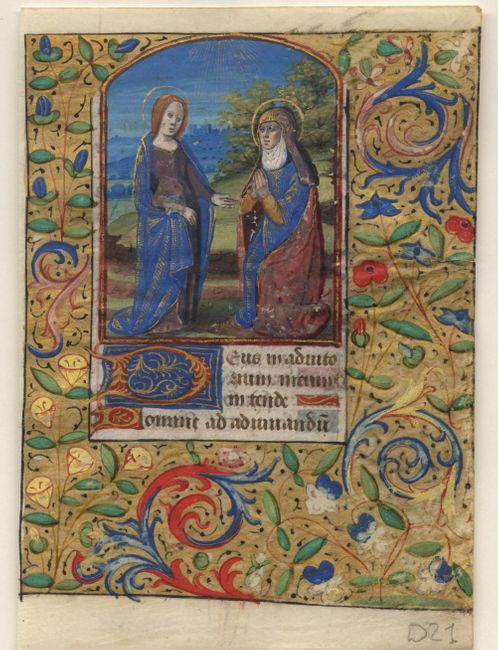 Deus in adiuto
rium meum
in tende
Domine ad adiuuandū
D21